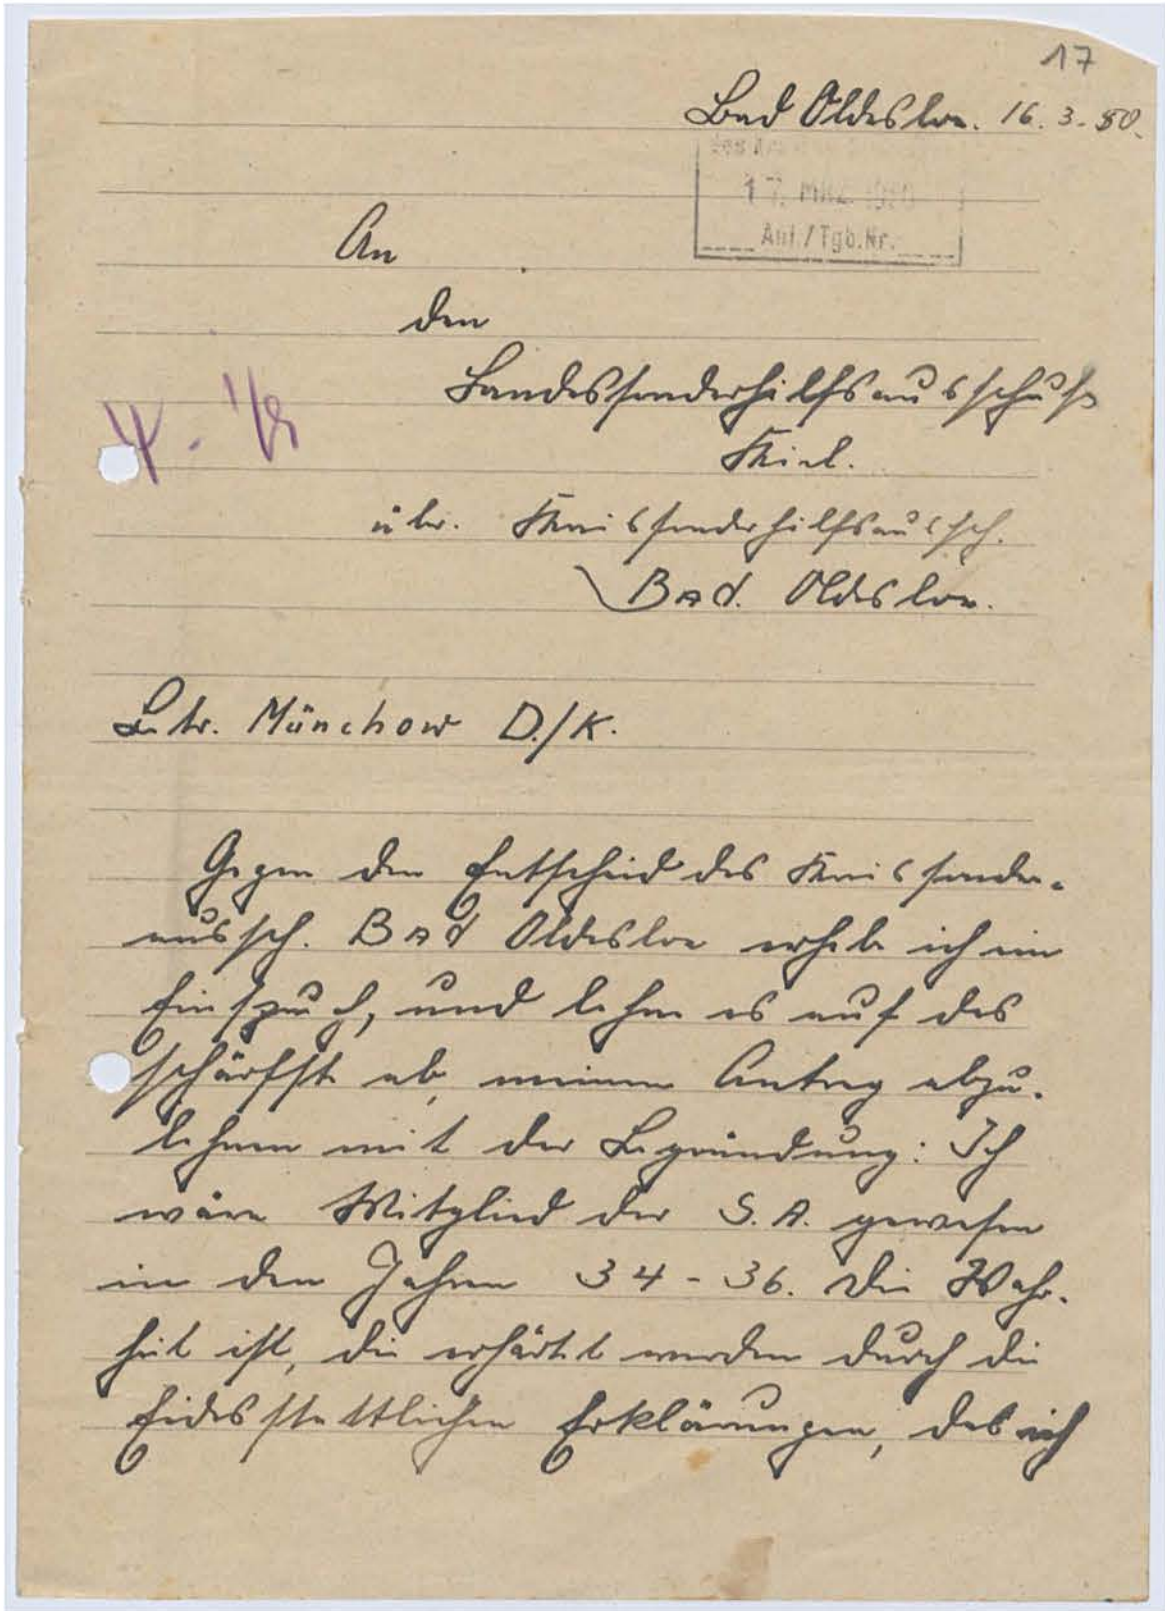 17
Bad Oldesloe. 16.3.50.
17. MRZ. 1950
Ant./Tgb.Nr.
An
den
Landessonderhilfsausschuß
Kiel.
über. Kreissonderhilfsaussch.
Bad. Oldesloe.
Betr. Münchow D./K.
Gegen den Entscheid des Kreissonder-
aussch. Bad Oldesloe erhebe ich im
Einspruch, und lehne es auf des
schärfste ab, meinen Antrag abzu-
lehnen mit der Begründung: Ich
wäre Mitglied der S.A. gewesen
in den Jahren 34-36. Die Wahr-
heit ist, die erhärtet werden durch die
Eidesstattlichen Erklärungen, das ich